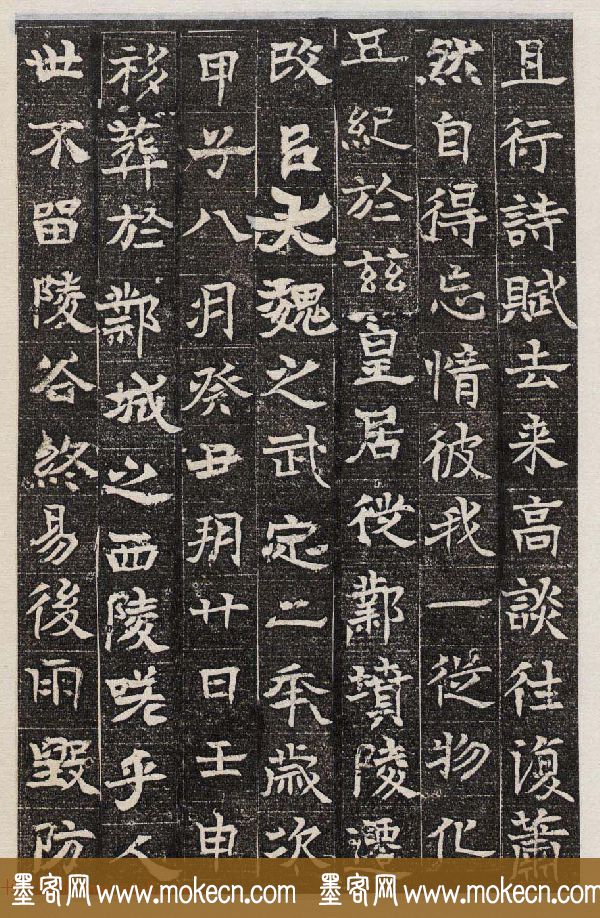 且行詩賦去来高談往復蕭
然自得忘情彼我一從物化
五紀於兹皇居從鄴墳陵遷
改以大魏之武定二年歲次
甲子八月癸丑朔廿日壬申
移葬於鄴城之西陵嗟乎人
世不留陵谷終易後雨毀防
墨客网 www.mokecn.com 墨客网 www.mokecn.com